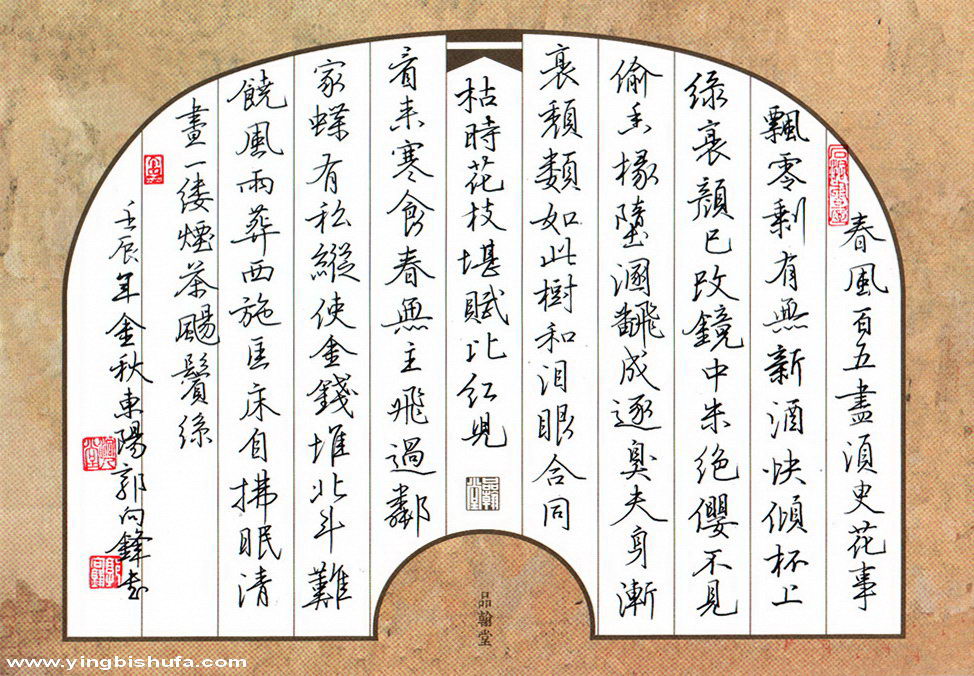 春風百五盡須臾花事
飄零剩有無新酒快傾杯上
綠衰顏已改鏡中朱絕纓不見
偷香椽墮溷飜成逐臭夫身漸
衰頹類如此樹和泪眼合同
枯時花枝堪賦比紅兒
看来寒食春無主飛過鄰
家蝶有私縱使金錢堆北斗難
饒風雨葬西施匡床自拂眠清
晝一縷煙茶颺鬢絲
壬辰年金秋東陽郭向鋒書
品翰堂
品翰堂
www.yingbishufa.com